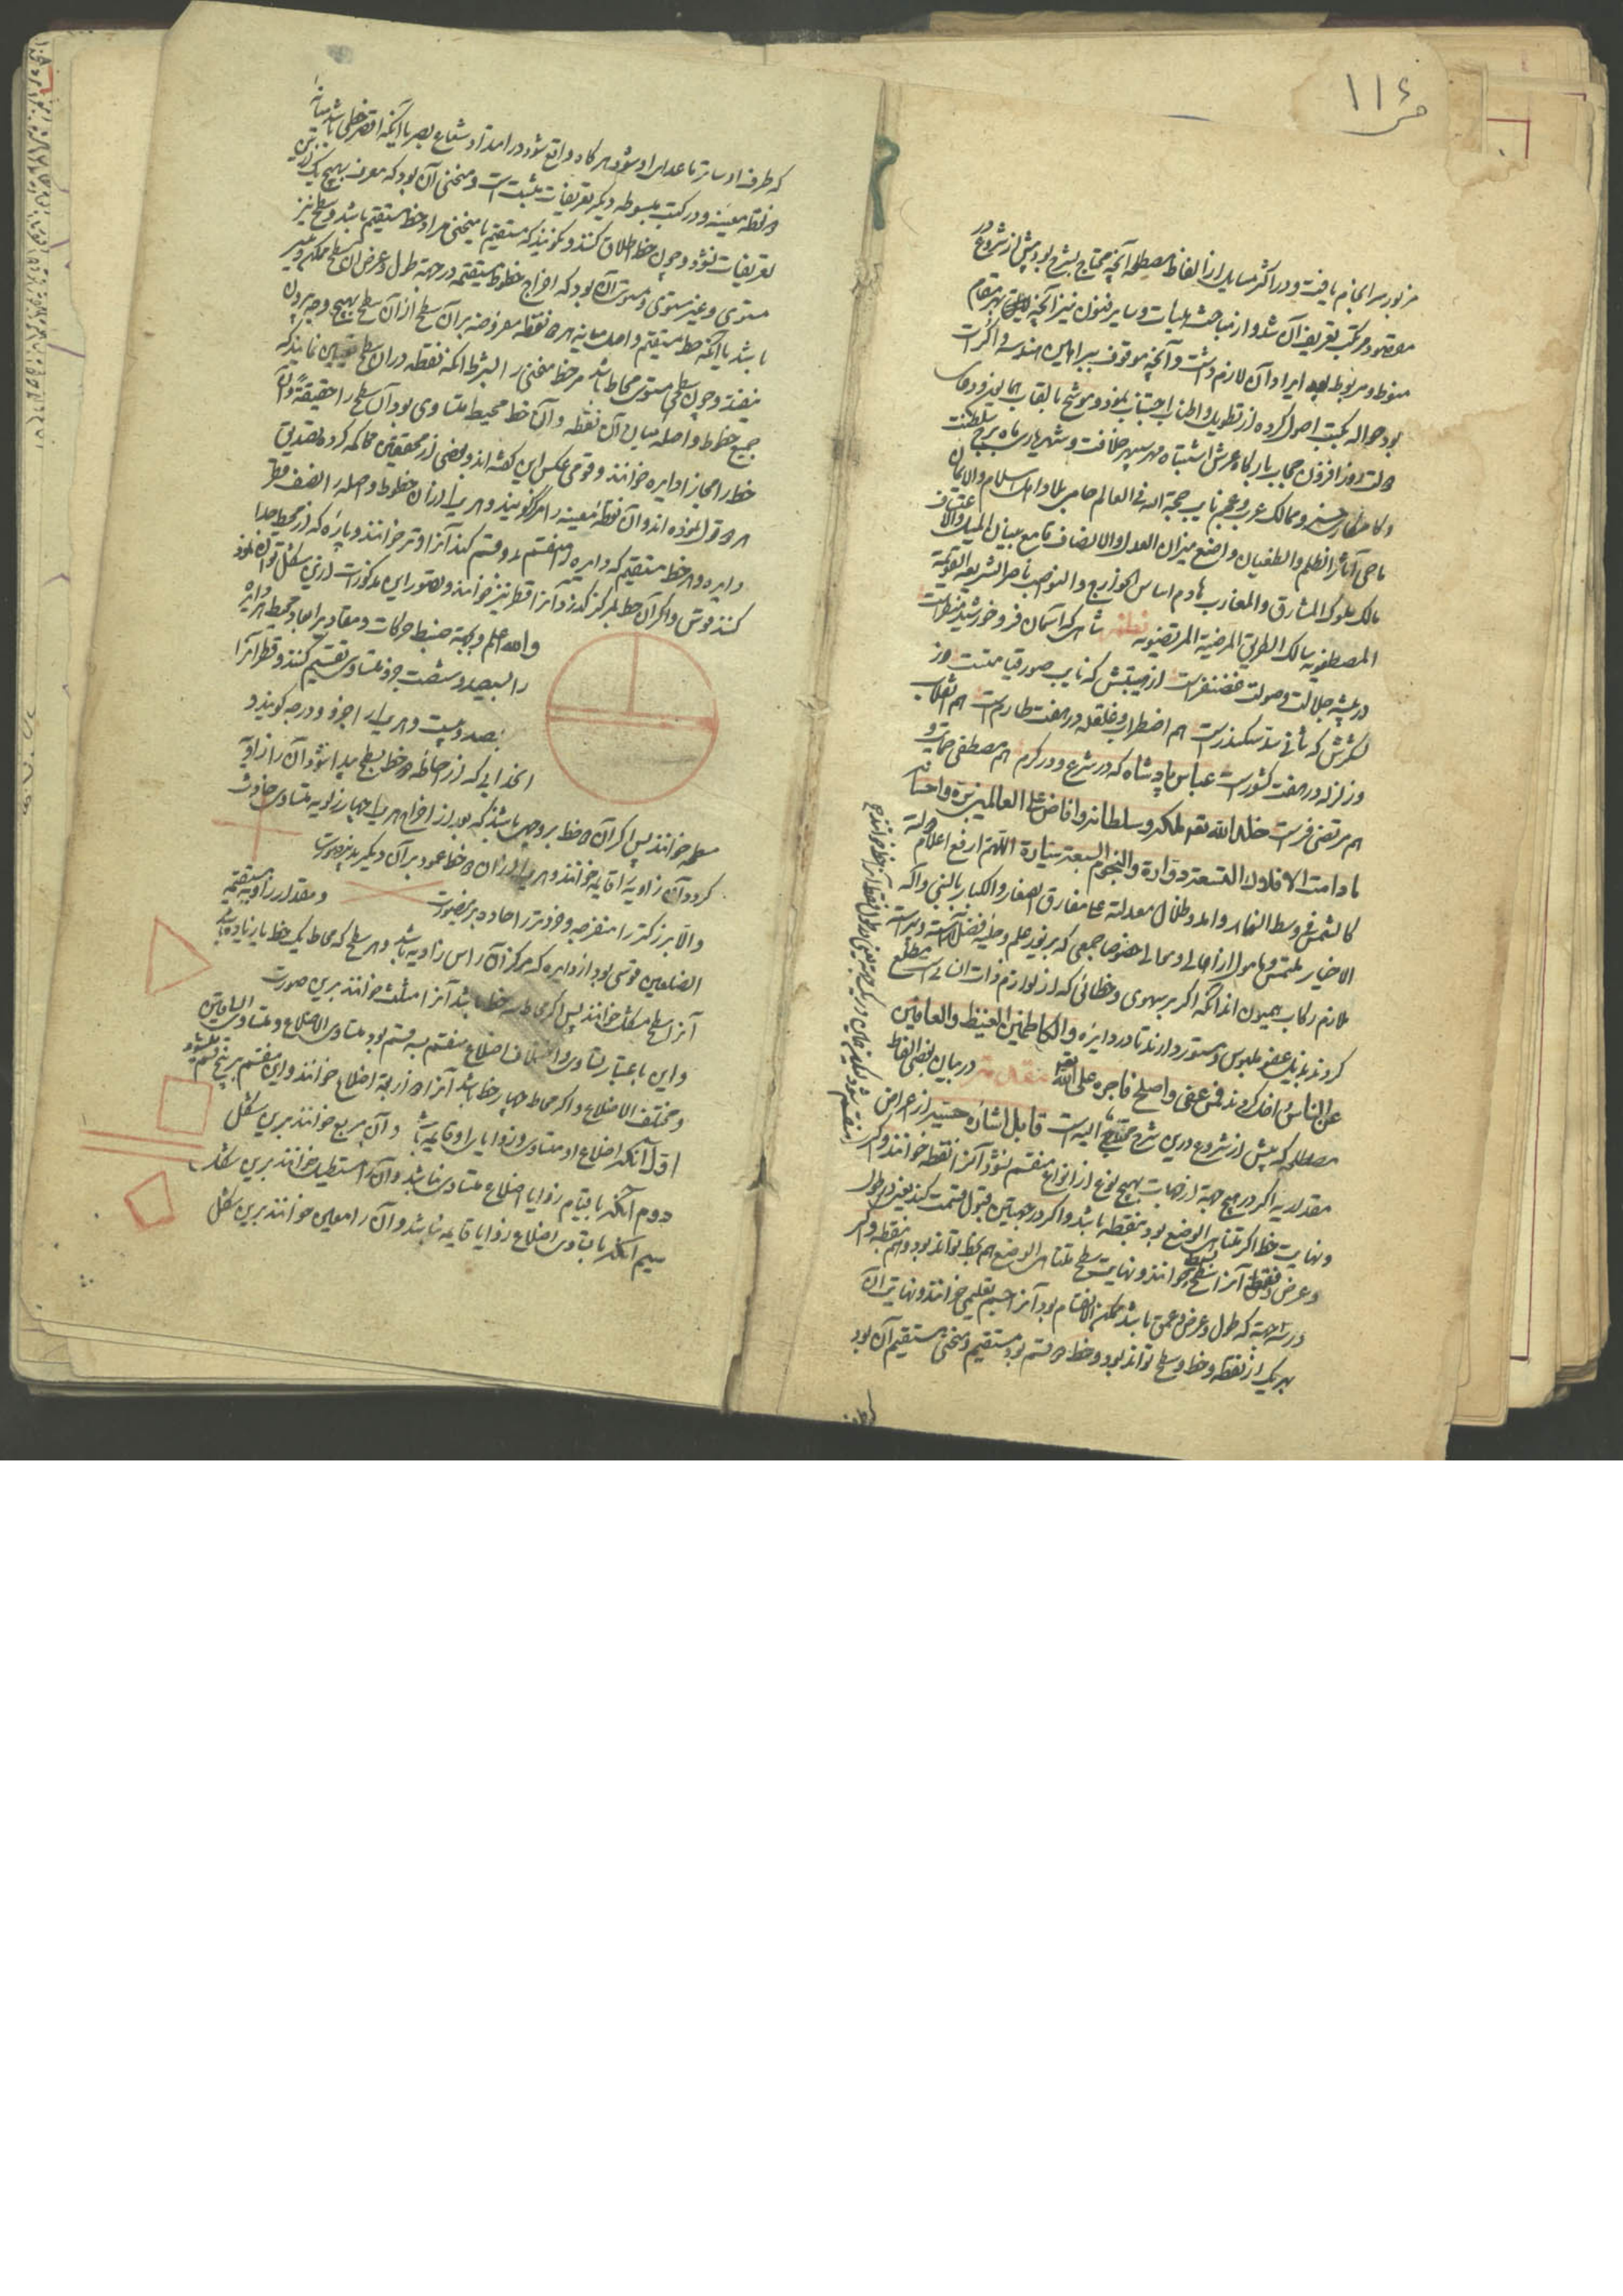 ص ١١٤
مزبور سرانجام یافت و در اکثر مسایل از الفاظ مصطلحه آنچه محتاج بشرح بود پیش از شروع در
مقصود مرتکب تعریف آن شد و از مباحث هیأت و سایر فنون نیز آنچه بهر مقام
منوط و مربوط بود ایراد آن لازم دانست و آنچه موقوف ببراهین هندسه و اکرات
بود حواله بکتب اصول کرده از تطویل و اطناب اجتناب نمود و موشح بالقاب همایون
دولت روز افزون حجاب بارگاه عرش اشتباه مهر سپهر خلافت و شهریاری ماه برج سلطنت
و کامکاری خسرو ممالک عرب و عجم نایب حجة الله فی العالم حامی بلاد اهل اسلام والایمان
ماحی آثار الظلم والطغیان واضع میزان العدل والانصاف قامع بنیان المیل والاعتساف
مالک ملوک المشارق والمغارب هادم اساس الخوارج والنواصب ناصر الشریعة القویمة
المصطفویه سالک الطریق المرضیة المرتضویه نظم شاهی که آسمان فر و خورشید منظر است
در بیشه جلالت و صولت غضنفر است از هیبتش که نایب صور قیامتست وز
لشکرش که ثانی سد سکندر است هم اضطراب و غلغله در هفت طارم است هم انقلاب
و زلزله در هفت کشور است عباس پادشاه که در شرع و در کرم هم مصطفی حمایت و
هم مرتضی فر است خلد الله تعالی ملکه و سلطانه و افاض علی العالمین بره و احسانه
ما دامت الافلاک التسعة دوارة والنجوم السبعة سیارة اللهم ارفع اعلام دولته
کالشمس فی وسط النهار وامدد ظلال معدلته علی مفارق الصغار والکبار بالنبی وآله
الاخیار ملتمس و مأمول از اهالی و موالی خصوصا جمعی که بزیور علم و حلیه فضل آراسته و در سلک
ملازم رکاب همیون اند آنکه اگر بر سهوی و خطائی که از لوازم ذات انسانی است مطلع
کردند بذیل عفو ملبوس و مستور دارند تا در دایره والکاظمین الغیظ والعافین
عن الناس داخل کردند فمن عفی واصلح فاجره علی الله تعالی مقدمه در بیان بعضی الفاظ
مصطلحه که پیش از شروع درین شرح محتاج الیه است قابل اشاره حسیه از اعراض
مقداریه اگر در هیچ جهة از جهات بهیچ نوع از انواع منقسم نشود آنرا نقطه خوانند و اگر
و نهایت خط اگر متناهی الوضع بود بنقطه باشد و اگر در جهتین قبول قسمت کند یعنی در طول
و عرض فقط آنرا سطح خوانند و نهایت سطح متناهی الوضع هم بخط تواند بود و هم بنقطه و اگر
در سه جهة که طول و عرض و عمق باشد ممکن الانقسام بود آنرا جسم تعلیمی خوانند و نهایت آن
بهر یک از نقطه و خط و سطح تواند بود و خط دو قسم بود مستقیم و منحنی مستقیم آن بود
که طرف او ساتر ماعدای او شود هرگاه واقع شود در امتداد شعاع بصر یا آنکه اقصر خطی باشد میان
دو نقطه معینه و در کتب مبسوطه دیگر تعریفات مثبت است و منحنی آن بود که معرف بهیچ یک از این
تعریفات نشود و چون خط اطلاق کنند و نگویند که مستقیم یا منحنی مراد خط مستقیم باشد و سطح نیز
مستوی و غیر مستوی و مستوی آن بود که اخراج خطوط مستقیمه در جهة طول و عرض آن سطح ممکن
باشد یا آنکه خط مستقیم واصل میانه هر دو نقطه مفروضه بر آن سطح از آن سطح بهیچ وجه بیرون
نیفتد و چون سطحی مستوی محاط باشد بر خط منحنی بشرط آنکه نقطه در آن سطح تعیین نمایند که
جمیع خطوط واصله میان آن نقطه و آن خط محیط متساوی بود آن سطح را حقیقة و آن
خط را مجازا دایره خوانند و قومی عکس این گفته اند و بعضی از محققین محاکمه کرده تصدیق
هر دو قول نموده اند و آن نقطه معینه را مرکز گویند و هر یک از آن خطوط واصله را نصف قطر
دایره و هر خط مستقیم که دایره را منقسم بدو قسم کند آنرا وتر خوانند و پاره که از محیط جدا
کند قوس و اگر آن خط بمرکز گذرد آنرا قطر نیز خوانند و تصویر این مذکورات ازین شکل توان نمود
والله اعلم و بجهة ضبط حرکات و مقادیر ابعاد محیط هر دایره
را بسیصد و شصت جزو متساوی تقسیم کنند و قطر آنرا
بصد و بیست و هر یک را جزو و درجه گویند و
انحدابی که از احاطه دو خط بسطح پیدا شود آن را زاویه
سطحه خوانند پس اگر آن دو خط بر وجهی باشد که بعد از اخراج هر یک چهار زاویه متساوی حادث
گردد آن زاویه را قایمه خوانند و هر یک از آن دو خط عمود بر آن دیگر بدین صورت
والا بزرگتر را منفرجه و خردتر را حاده برین صورت و مقدار زاویه مستقیمة
الضلعین قوسی بود از دایره که مرکز آن رأس زاویه باشد و هر سطح که محاط بیک خط یا زیاده باشد
آنرا سطح مشکل خوانند پس اگر محاط بسه خط باشد آنرا مثلث خوانند برین صورت
و این باعتبار تساوی و اختلاف اضلاع منقسم بسه قسم بود متساوی الاضلاع و متساوی الساقین
و مختلف الاضلاع و اگر محاط چهار خط باشد آنرا ذو اربعة اضلاع خوانند و این منقسم بر پنج قسم میشود
اول آنکه اضلاع او متساوی و زوایا او قایمه باشد و آن مربع خوانند برین شکل
دوم آنکه با قیام زوایا اضلاع متساوی نباشد و آنرا مستطیل خوانند برین شکل
سیم آنکه با تساوی اضلاع زوایا قایمه نباشد و آن را معین خوانند برین شکل